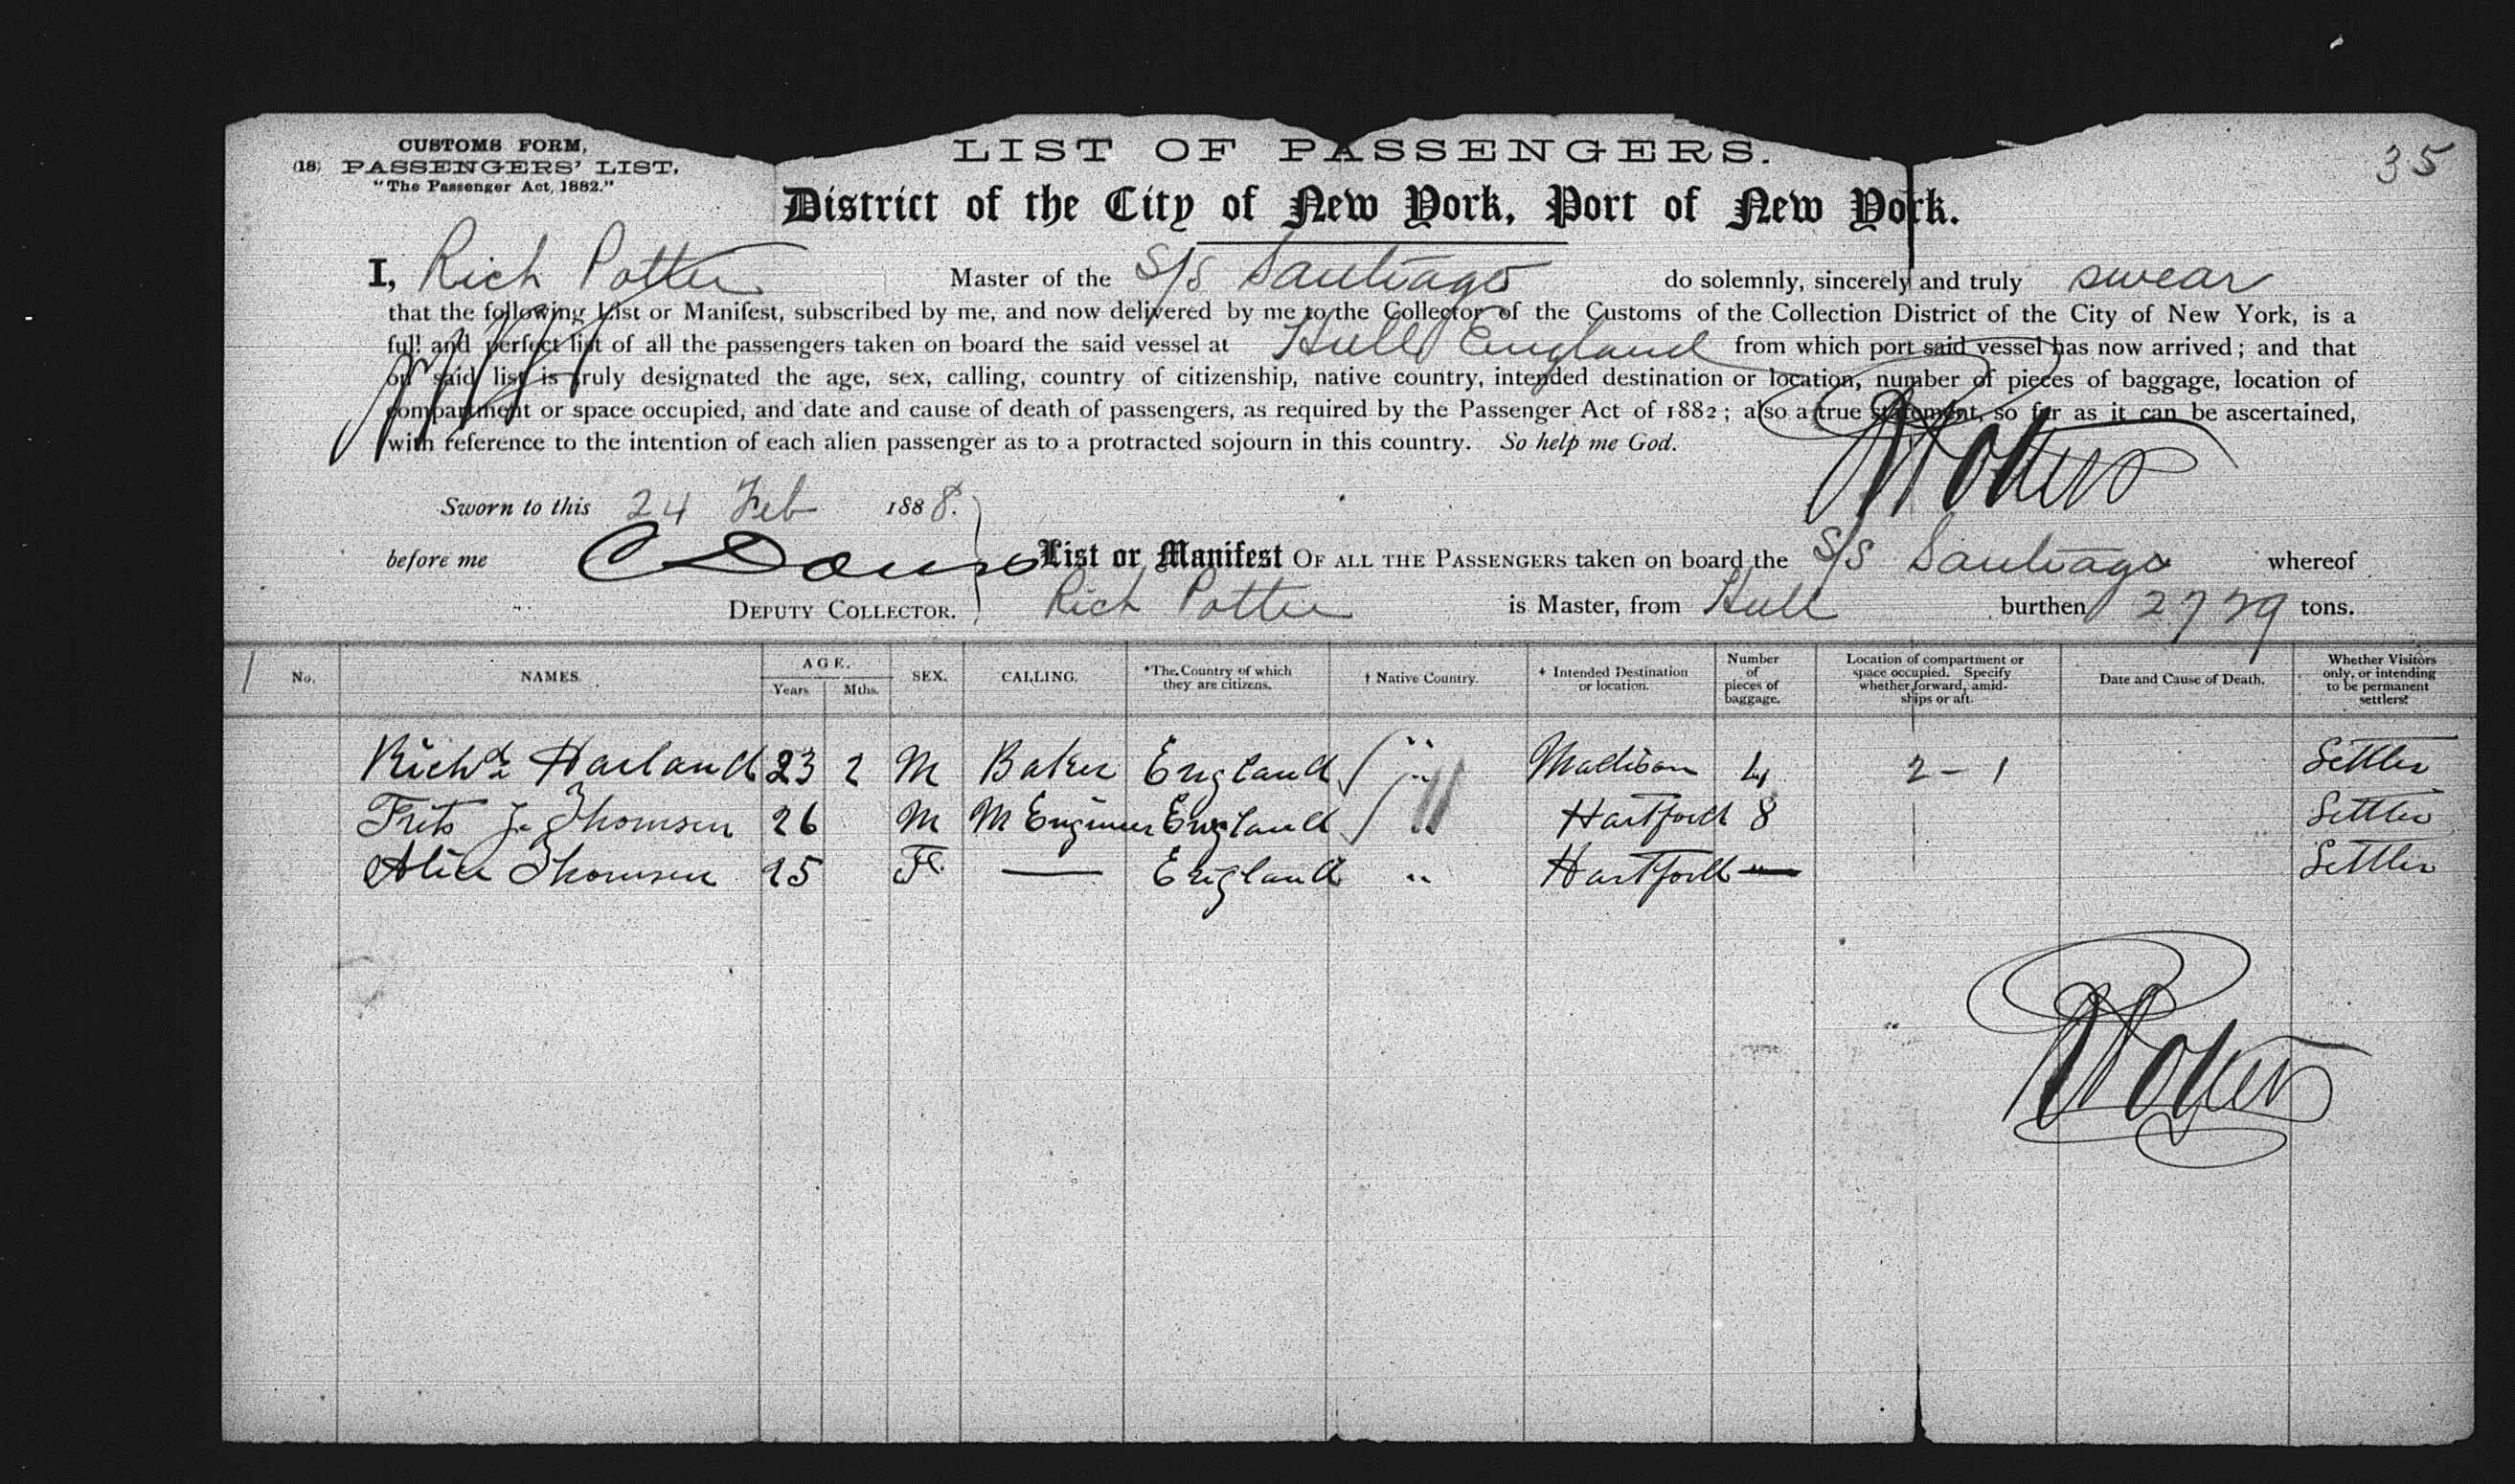 CUSTOMS FORM,
(18) PASSENGERS' LIST.
"The Passenger Act, 1882."
LIST OF PASSENGERS.
35
District of the City of New York, Port of New York.
I, Rich Potter Master of the S/S Santiago do solemnly, sincerely and truly swear
that the following List or Manifest, subscribed by me, and now delivered by me to the Collector of the Customs of the Collection District of the City of New York, is a
full and perfect list of all the passengers taken on board the said vessel at Hull England from which port said vessel has now arrived; and that
on said list is truly designated the age, sex, calling, country of citizenship, native country, intended destination or location, number of pieces of baggage, location of
compartment or space occupied, and date and cause of death of passengers, as required by the Passenger Act of 1882; also a true statement, so far as it can be ascertained,
with reference to the intention of each alien passenger as to a protracted sojourn in this country. So help me God.
Sworn to this 24 Feb 1888.
before me
DEPUTY COLLECTOR.
List or Manifest OF ALL THE PASSENGERS taken on board the S/S Santiago whereof
Rich Potter is Master, from Hull burthen 2779 tons.
No. NAMES. AGE. Years Mths. SEX. CALLING. *The Country of which they are citizens. † Native Country. + Intended Destination or location. Number of pieces of baggage. Location of compartment or space occupied. Specify whether forward, amidships or aft. Date and Cause of Death. Whether Visitors only, or intending to be permanent settlers?
Richd Harland 23 2 M Baker England " Madison 4 2 - 1 Settler
Fritz J. Thomsen 26 M M Engineer England " Hartford 8 Settler
Alice Thomsen 25 F — England " Hartford — Settler
R Potter